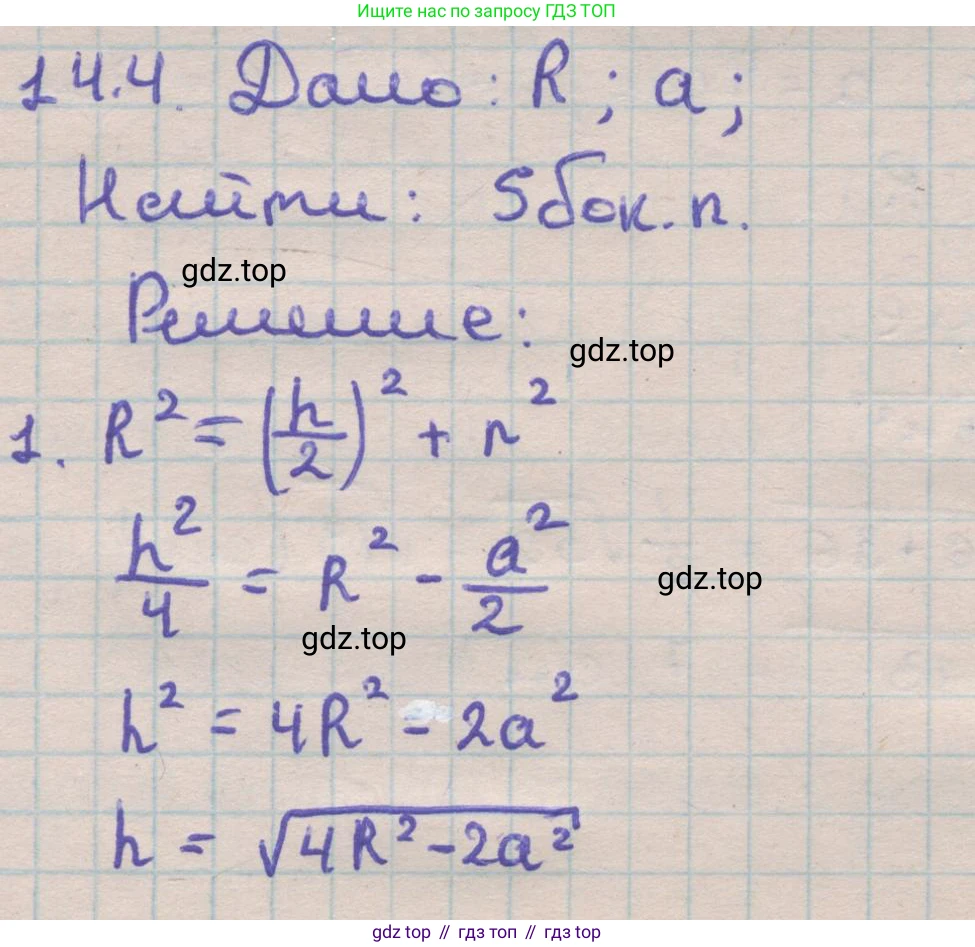 Ищите нас по запросу ГДЗ ТОП
14.4. Дано: R; a;
Найти: Sбок.п.
gdz.top
Решение:
gdz.top
1. R² = (h/2)² + r²
h²/4 = R² - a²/2
gdz.top
gdz.top
h² = 4R² - 2a²
h = √(4R² - 2a²)
gdz top // гдз топ // гдз top